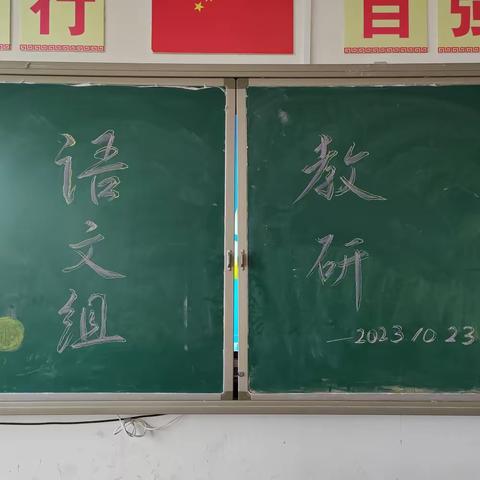 行
自强
语文组
教研
—2023.10.23